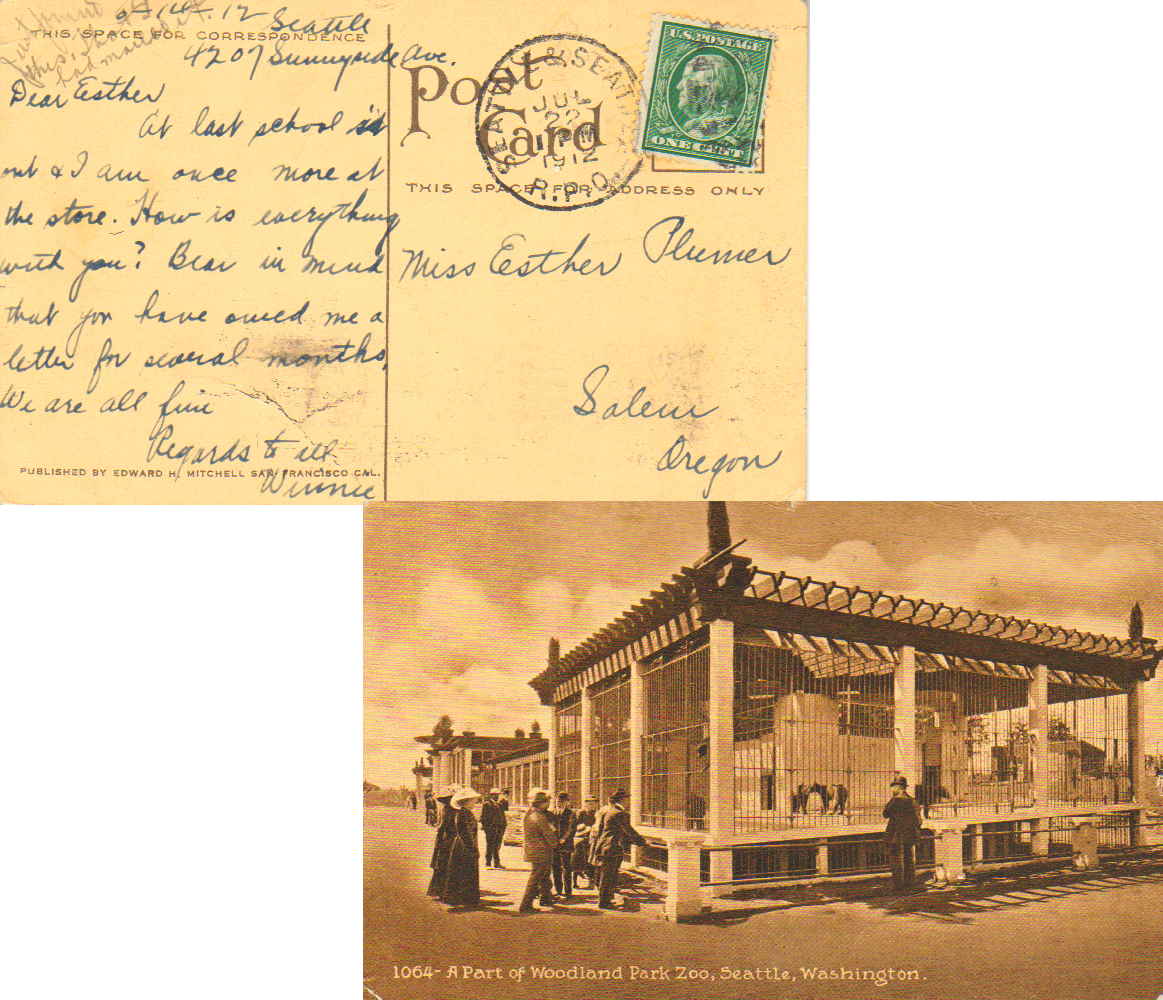 THIS SPACE FOR CORRESPONDENCE
Seattle
4207 Sunnyside Ave.
Dear Esther
At last school is
out & I am once more at
the store. How is everything
with you? Bear in mind
that you have owed me a
letter for several months,
We are all fine
Regards to all
Winnie
PUBLISHED BY EDWARD H. MITCHELL SAN FRANCISCO CAL.
Post
Card
SEATTLE
JUL
22
1912
R.P.O.
U.S. POSTAGE
ONE CENT
THIS SPACE FOR ADDRESS ONLY
Miss Esther Plumer
Salem
Oregon
1064- A Part of Woodland Park Zoo, Seattle, Washington.